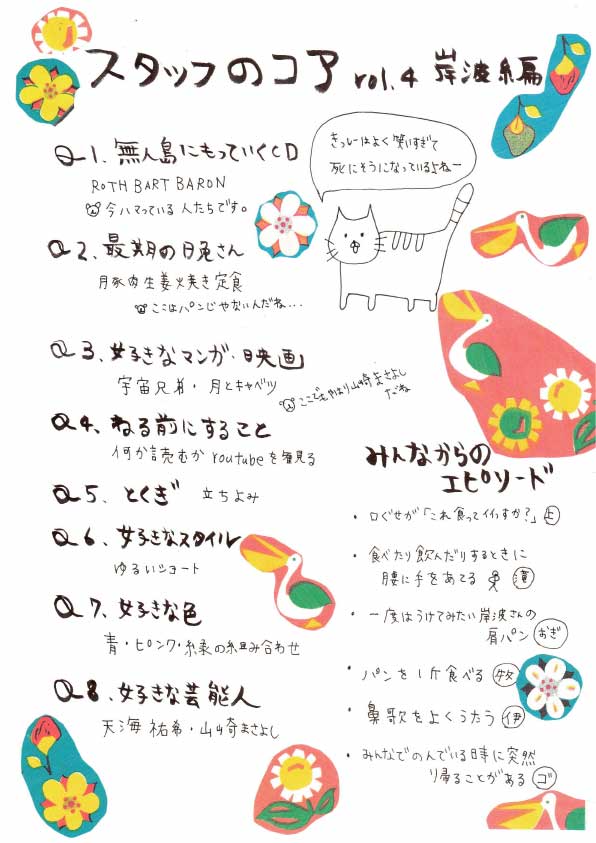 スタッフのコア vol.4 岸波編
きっしーはよく笑いすぎて
死にそうになっているよねー
Q1、無人島にもっていくCD
ROTH BART BARON
今ハマっている人たちです。
Q2、最期の晩さん
豚肉生姜焼き定食
ここはパンじゃないんだね...
Q3、好きなマンガ・映画
宇宙兄弟・月とキャベツ
ここでもやはり山崎まさよし
だね
Q4、ねる前にすること
何か読むか youtubeを見る
Q5、とくぎ 立ちよみ
Q6、好きなスタイル
ゆるいショート
Q7、好きな色
青・ピンク・緑の組み合わせ
Q8、好きな芸能人
天海祐希・山崎まさよし
みんなからの
エピソード
・口ぐせが「これ食ってイイっすか?」上
・食べたり飲んだりするときに
腰に手をあてる 濱
・一度はうけてみたい岸波さんの
肩パン おぎ
・パンを1斤食べる 牧
・鼻歌をよくうたう 伊
・みんなでのんでいる時に突然
帰ることがある ゴ